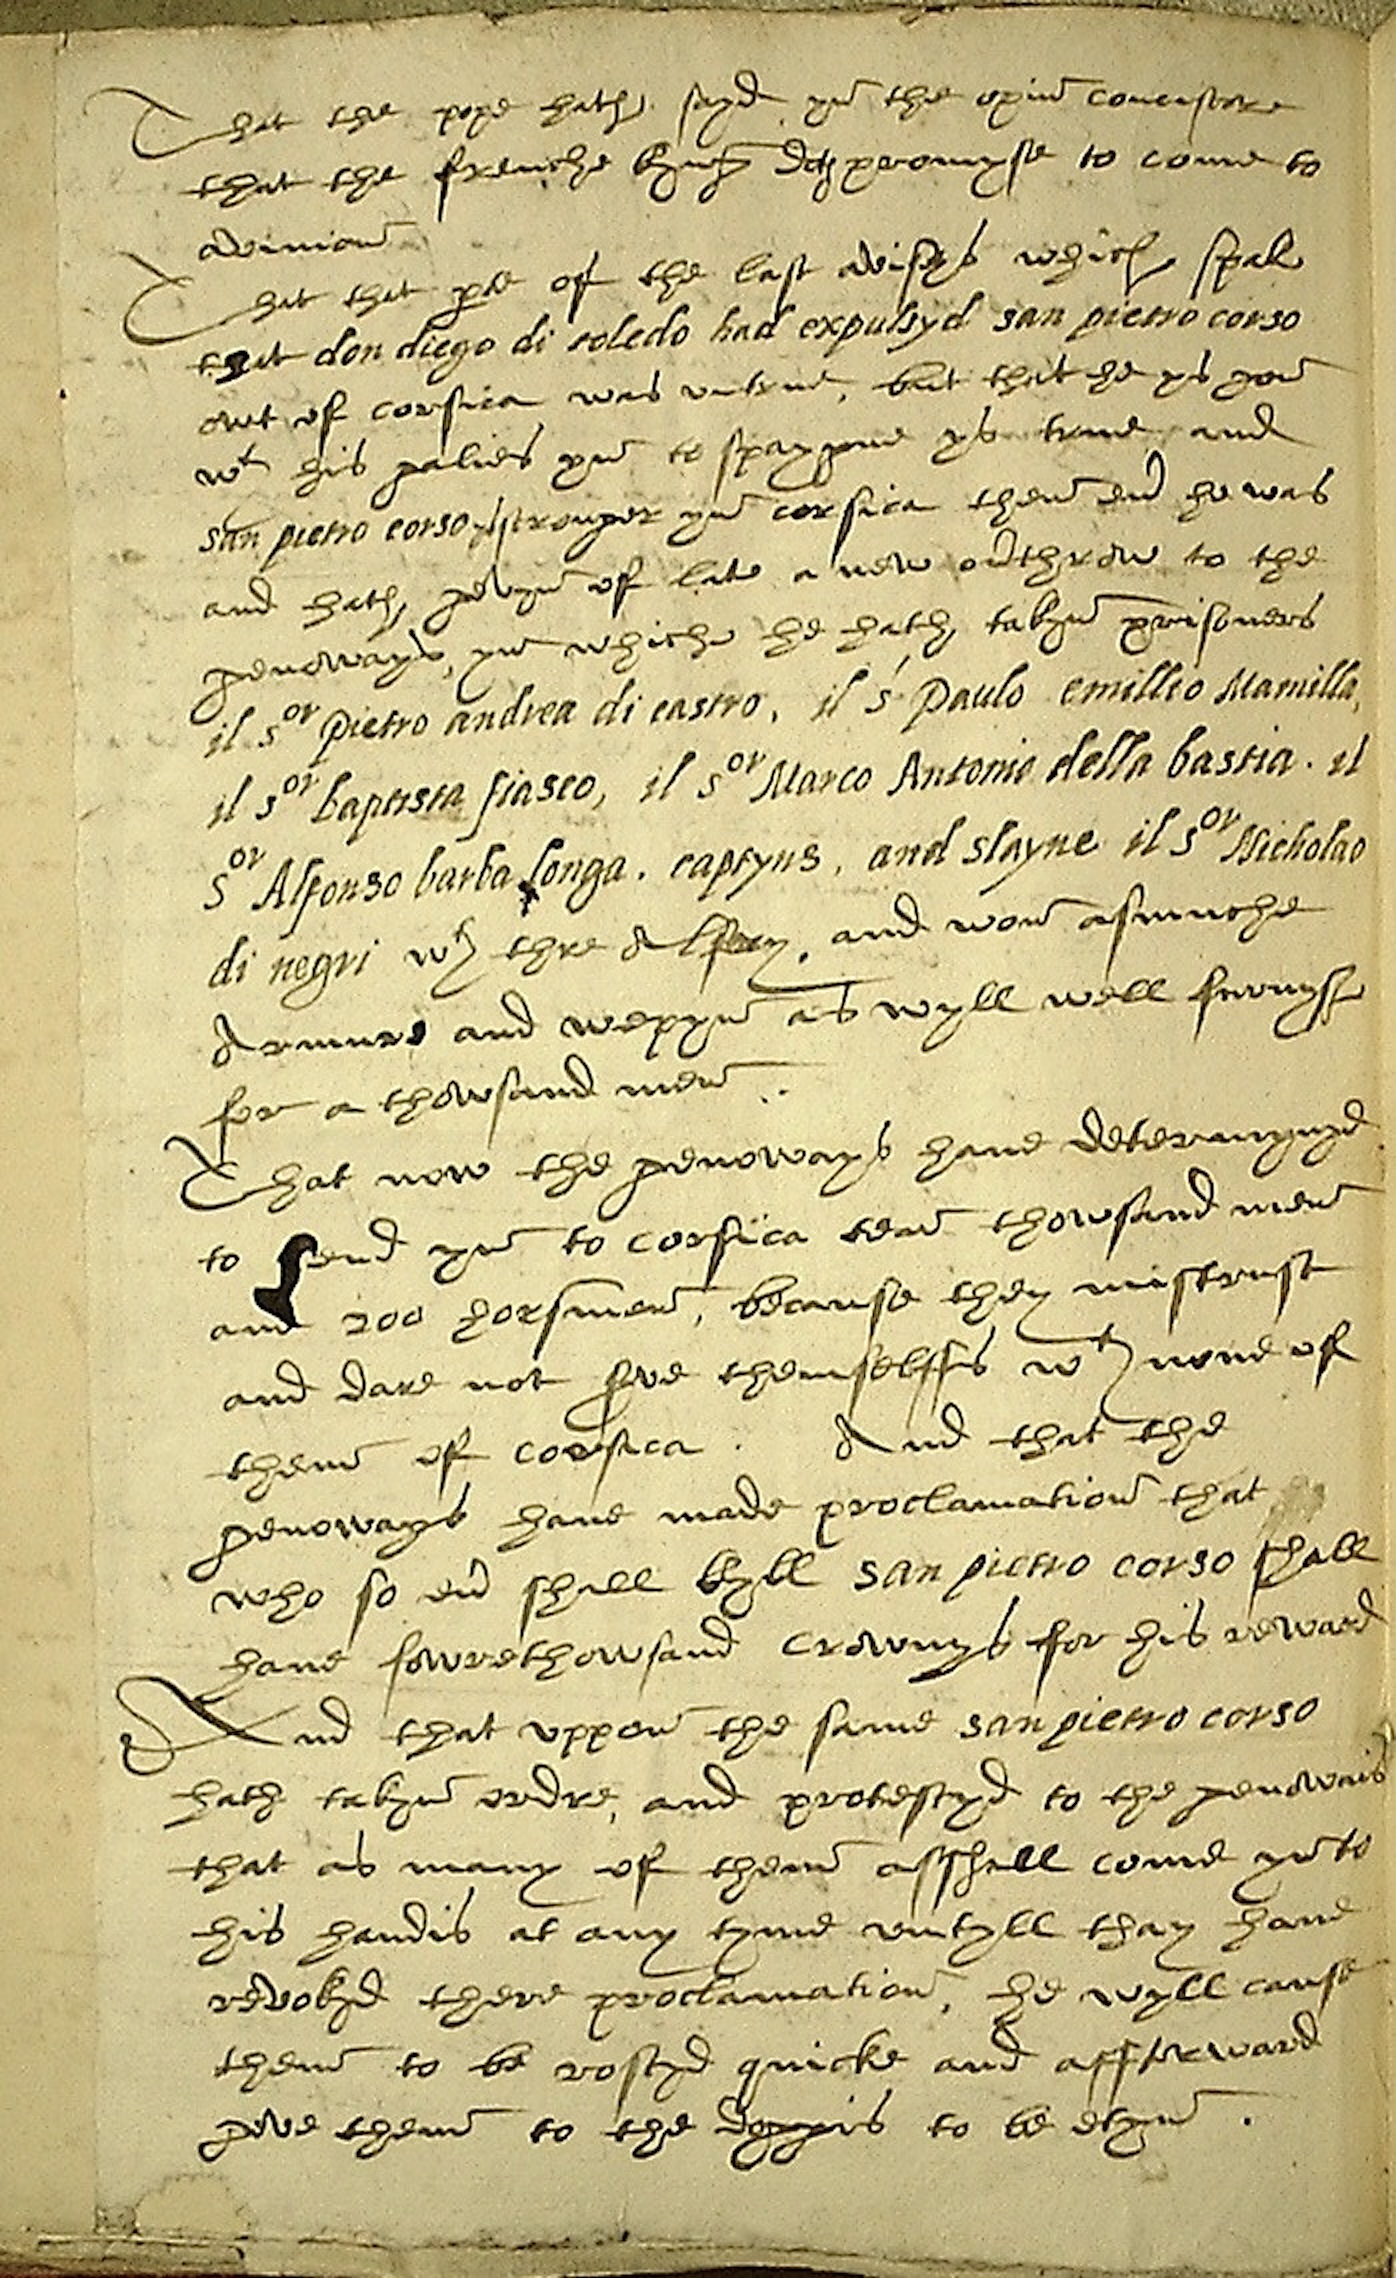 That the pope hath sayd yn the opin concistore
that the frenche kyng doth promyse to come to
avinion
That that parte of the last advisys which spak
that don diego di toledo had expulsyd san pietro corso
owt of corsica was untrue, but that he ys gon
wt his galies yn to spaygne ys true and
san pietro corso ys stronger yn corsica then evr he was
and hath gevyn of late a new ovrthrow to the
genoways, yn whiche he hath takyn prisoners
il sor Pietro andrea di castro, il sr Paulo emillio Mamilla,
il sor baptista fiasco, il sor Marco Antonio della bastia. il
sor Alfonso barba longa. captyns, and slayne il sor Nicholao
di negri wth thre and won asmuche
Armure and wepyn as wyll well furnysh
for a thowsand men..
That now the genoways have determynyd
to send yn to corsica ten thowsand men
and 200 horsmen, because they mistrust
and dare not serve themselffis wth none of
them of corsica. And that the
genoways have made proclamation that
who so evr shall kyll san pietro corso shall
have fowrethowsand crownys for his reward
And that uppon the same san pietro corso
hath takyn ordre, and protestyd to the genowais
that as many of them as shall come yn to
his handis at any tyme untyll thay have
revokyd there proclamation, he wyll cause
them to be rostyd quicke and affterward
geve them to the doggis to be etyn.